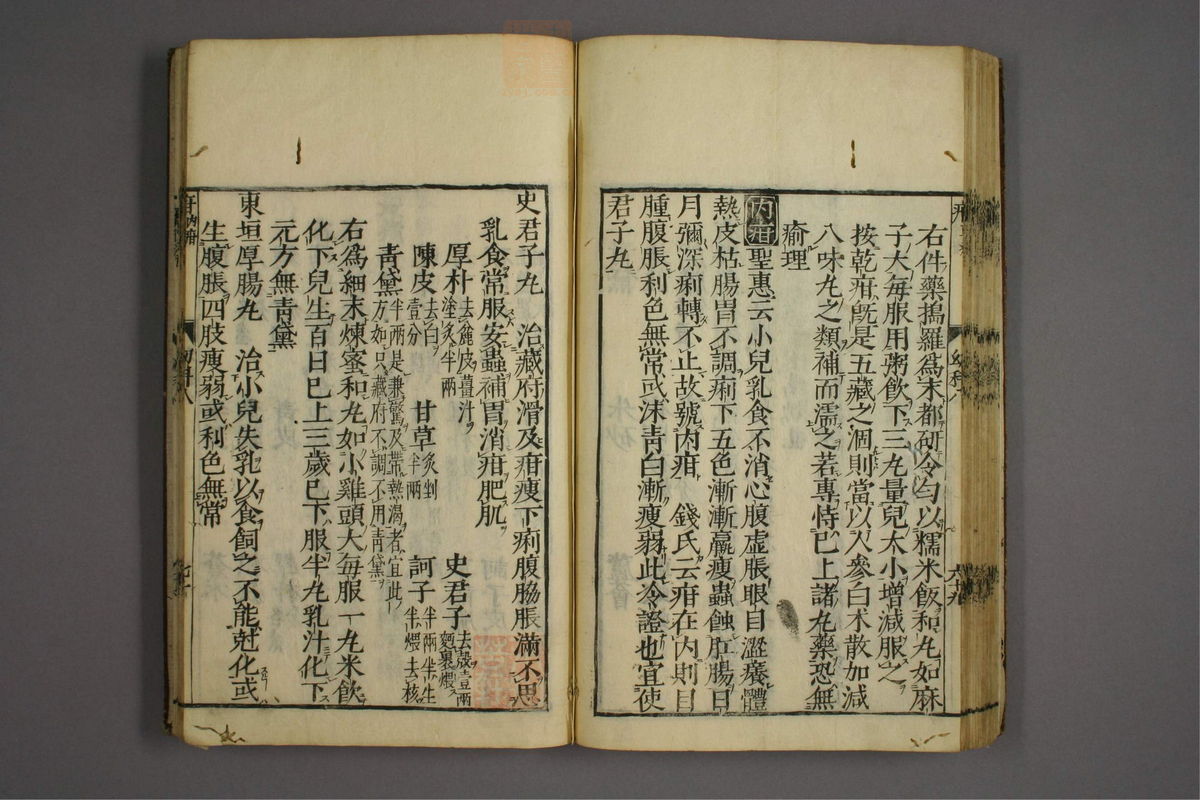 右件藥擣羅爲末都研令勻以糯米飯和丸如麻
子大每服用粥飲下三丸量兒大小增減服之
按乾疳旣是五藏之涸則當以人參白朮散加減
八味丸之類補而濡之若專恃巳上諸丸藥恐無
瘉理
内疳聖惠云小兒乳食不消心腹虛脹眼目澀癢體
熱皮枯腸胃不調痢下五色漸漸羸瘦蟲蝕肛腸日
月彌深痢轉不止故號内疳 錢氏云疳在内則目
腫腹脹利色無常或沫靑白漸瘦弱此冷證也宜使
君子丸
幼科八
六十九
史君子丸 治藏府滑及疳瘦下痢腹脇脹滿不思
乳食常服安蟲補胃消疳肥肌
厚朴去麄皮薑汁塗炙半兩 史君子去殼壹兩麪裹煨
陳皮去白壹分 甘草炙剉半兩 訶子半兩半生半煨去核
靑黛半兩是兼驚及帶熱渴者宜此方如只藏府不調不用靑黛
右爲細末煉蜜和丸如小雞頭大每服一丸米飲
化下兒生百日巳上三歲巳下服半丸乳汁化下
元方無靑黛
東垣厚腸丸 治小兒失乳以食飼之不能尅化或
生腹脹四肢瘦弱或利色無常
幼科八
七十